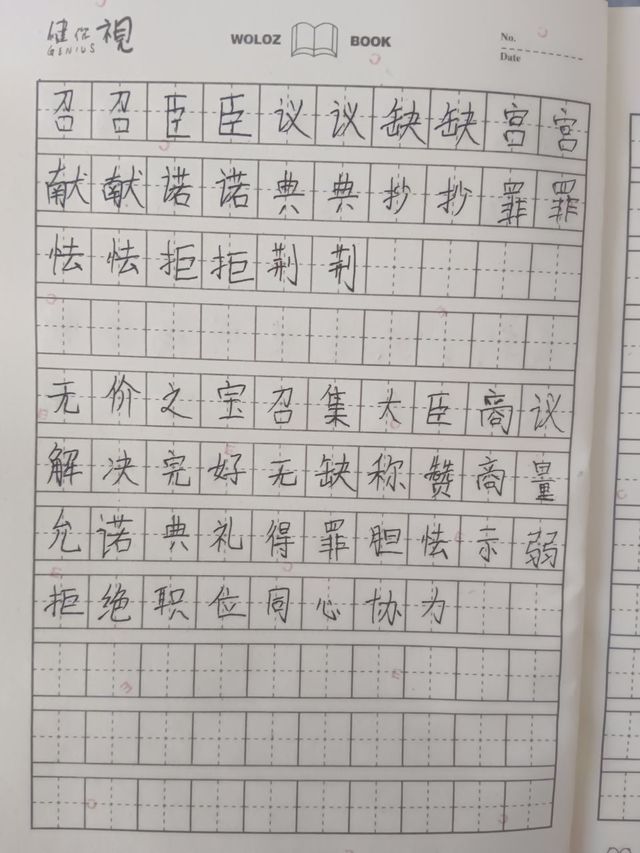 健你視
GENIUS
WOLOZ BOOK
No.
Date
召召臣臣议议缺缺宫宫
献献诺诺典典抄抄罪罪
怯怯拒拒荆荆
无价之宝召集大臣商议
解决完好无缺称赞商量
允诺典礼得罪胆怯示弱
拒绝职位同心协力